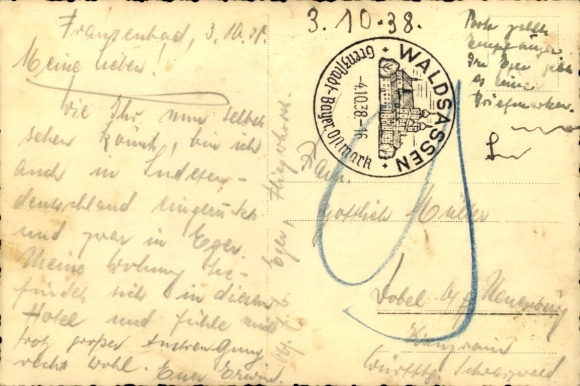 Franzensbad, 3.10.38.
Meine Lieben!
Wie Ihr nun selbst
sehen könnt, bin ich
auch in Sudeten-
deutschland eingerückt
und zwar in Eger.
Meine Wohnung be-
findet sich in diesem
Hotel und fühle mich
trotz großer Anstrengung
recht wohl. Euer Erwin.
Eger, Fliegerhorst.
3.10.38.
WALDSASSEN
-4.10.38-16
Grenzstadt-Bayer. Ostmark
Porto zahlt
Empfänger
In Eger gibt
es keine
Briefmarken.
Frau
Gottlieb Müller
Dobel b/ Neuenbürg
Württbg. Schwarzwald
9